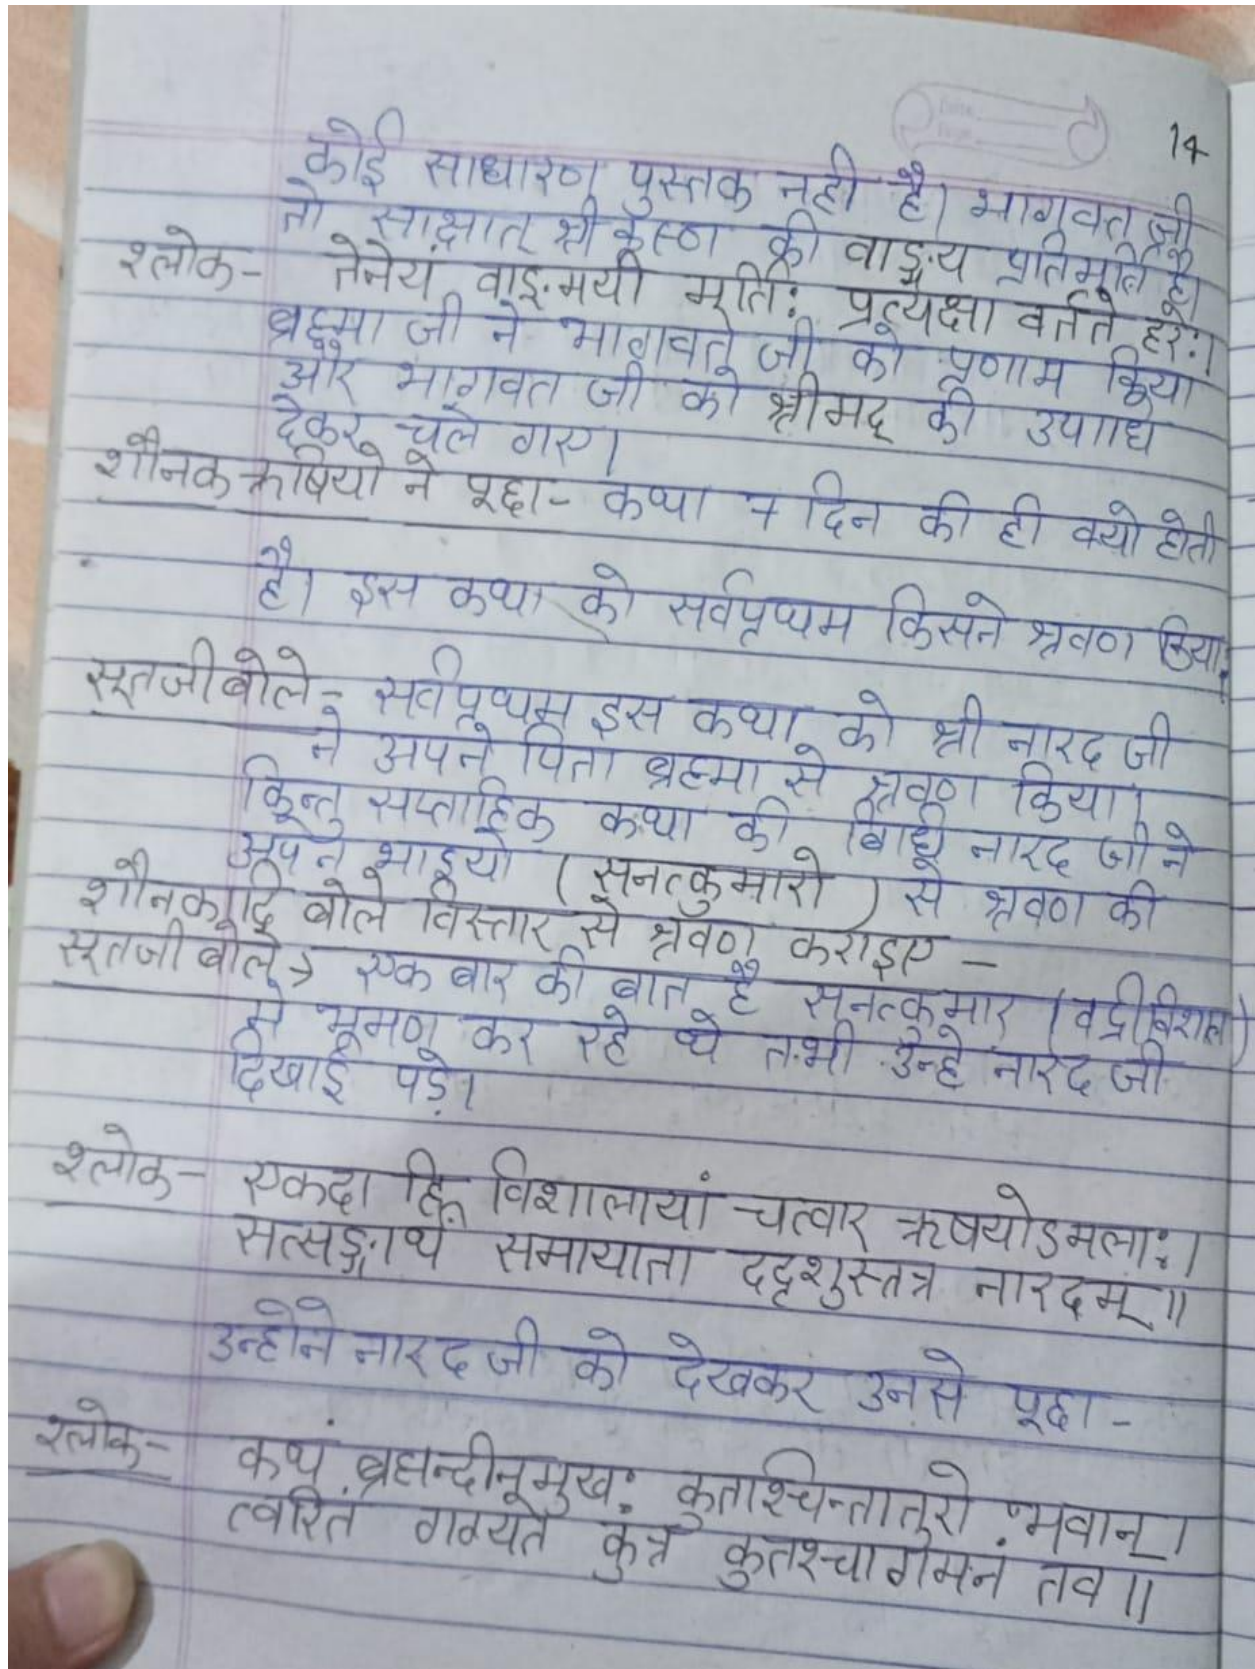 14
कोई साधारण पुस्तक नही है। भागवत जी
तो साक्षात् श्री कृस्ण की वाङ्मय प्रतिमूर्ति है।
श्लोक- तेनेयं वाङ्मयी मूर्ति: प्रत्यक्षा वर्तते हरे:।
ब्रह्मा जी ने भागवत जी को प्रणाम किया
और भागवत जी को श्रीमद् की उपाधि
देकर चले गए।
शौनक ऋषियो ने पूछा- कथा 7 दिन की ही क्यो होती
है। इस कथा को सर्वप्रथम किसने श्रवण किया
सूतजी बोले- सर्वप्रथम इस कथा को श्री नारद जी
ने अपने पिता ब्रह्मा से श्रवण किया।
किन्तु सप्ताहिक कथा की बिधि नारद जी ने
अपने भाइयो (सनत्कुमारो) से श्रवण की
शौनकादि बोले विस्तार से श्रवण कराइए -
सूतजी बोले→ एक बार की बात है सनत्कुमार (वद्रीविशाल)
मे भ्रमण कर रहे थे तभी उन्हे नारद जी
दिखाई पड़े।
श्लोक- एकदा हि विशालायां चत्वार ऋषयोऽमला:।
सत्सङ्गार्थ समायाता ददृशुस्तत्र नारदम्॥
उन्होने नारद जी को देखकर उनसे पूछा -
श्लोक- कथं ब्रह्मन्दीनमुख: कुतश्चिन्तातुरो भवान्।
त्वरितं गम्यते कुत्र कुतश्चागमनं तव॥